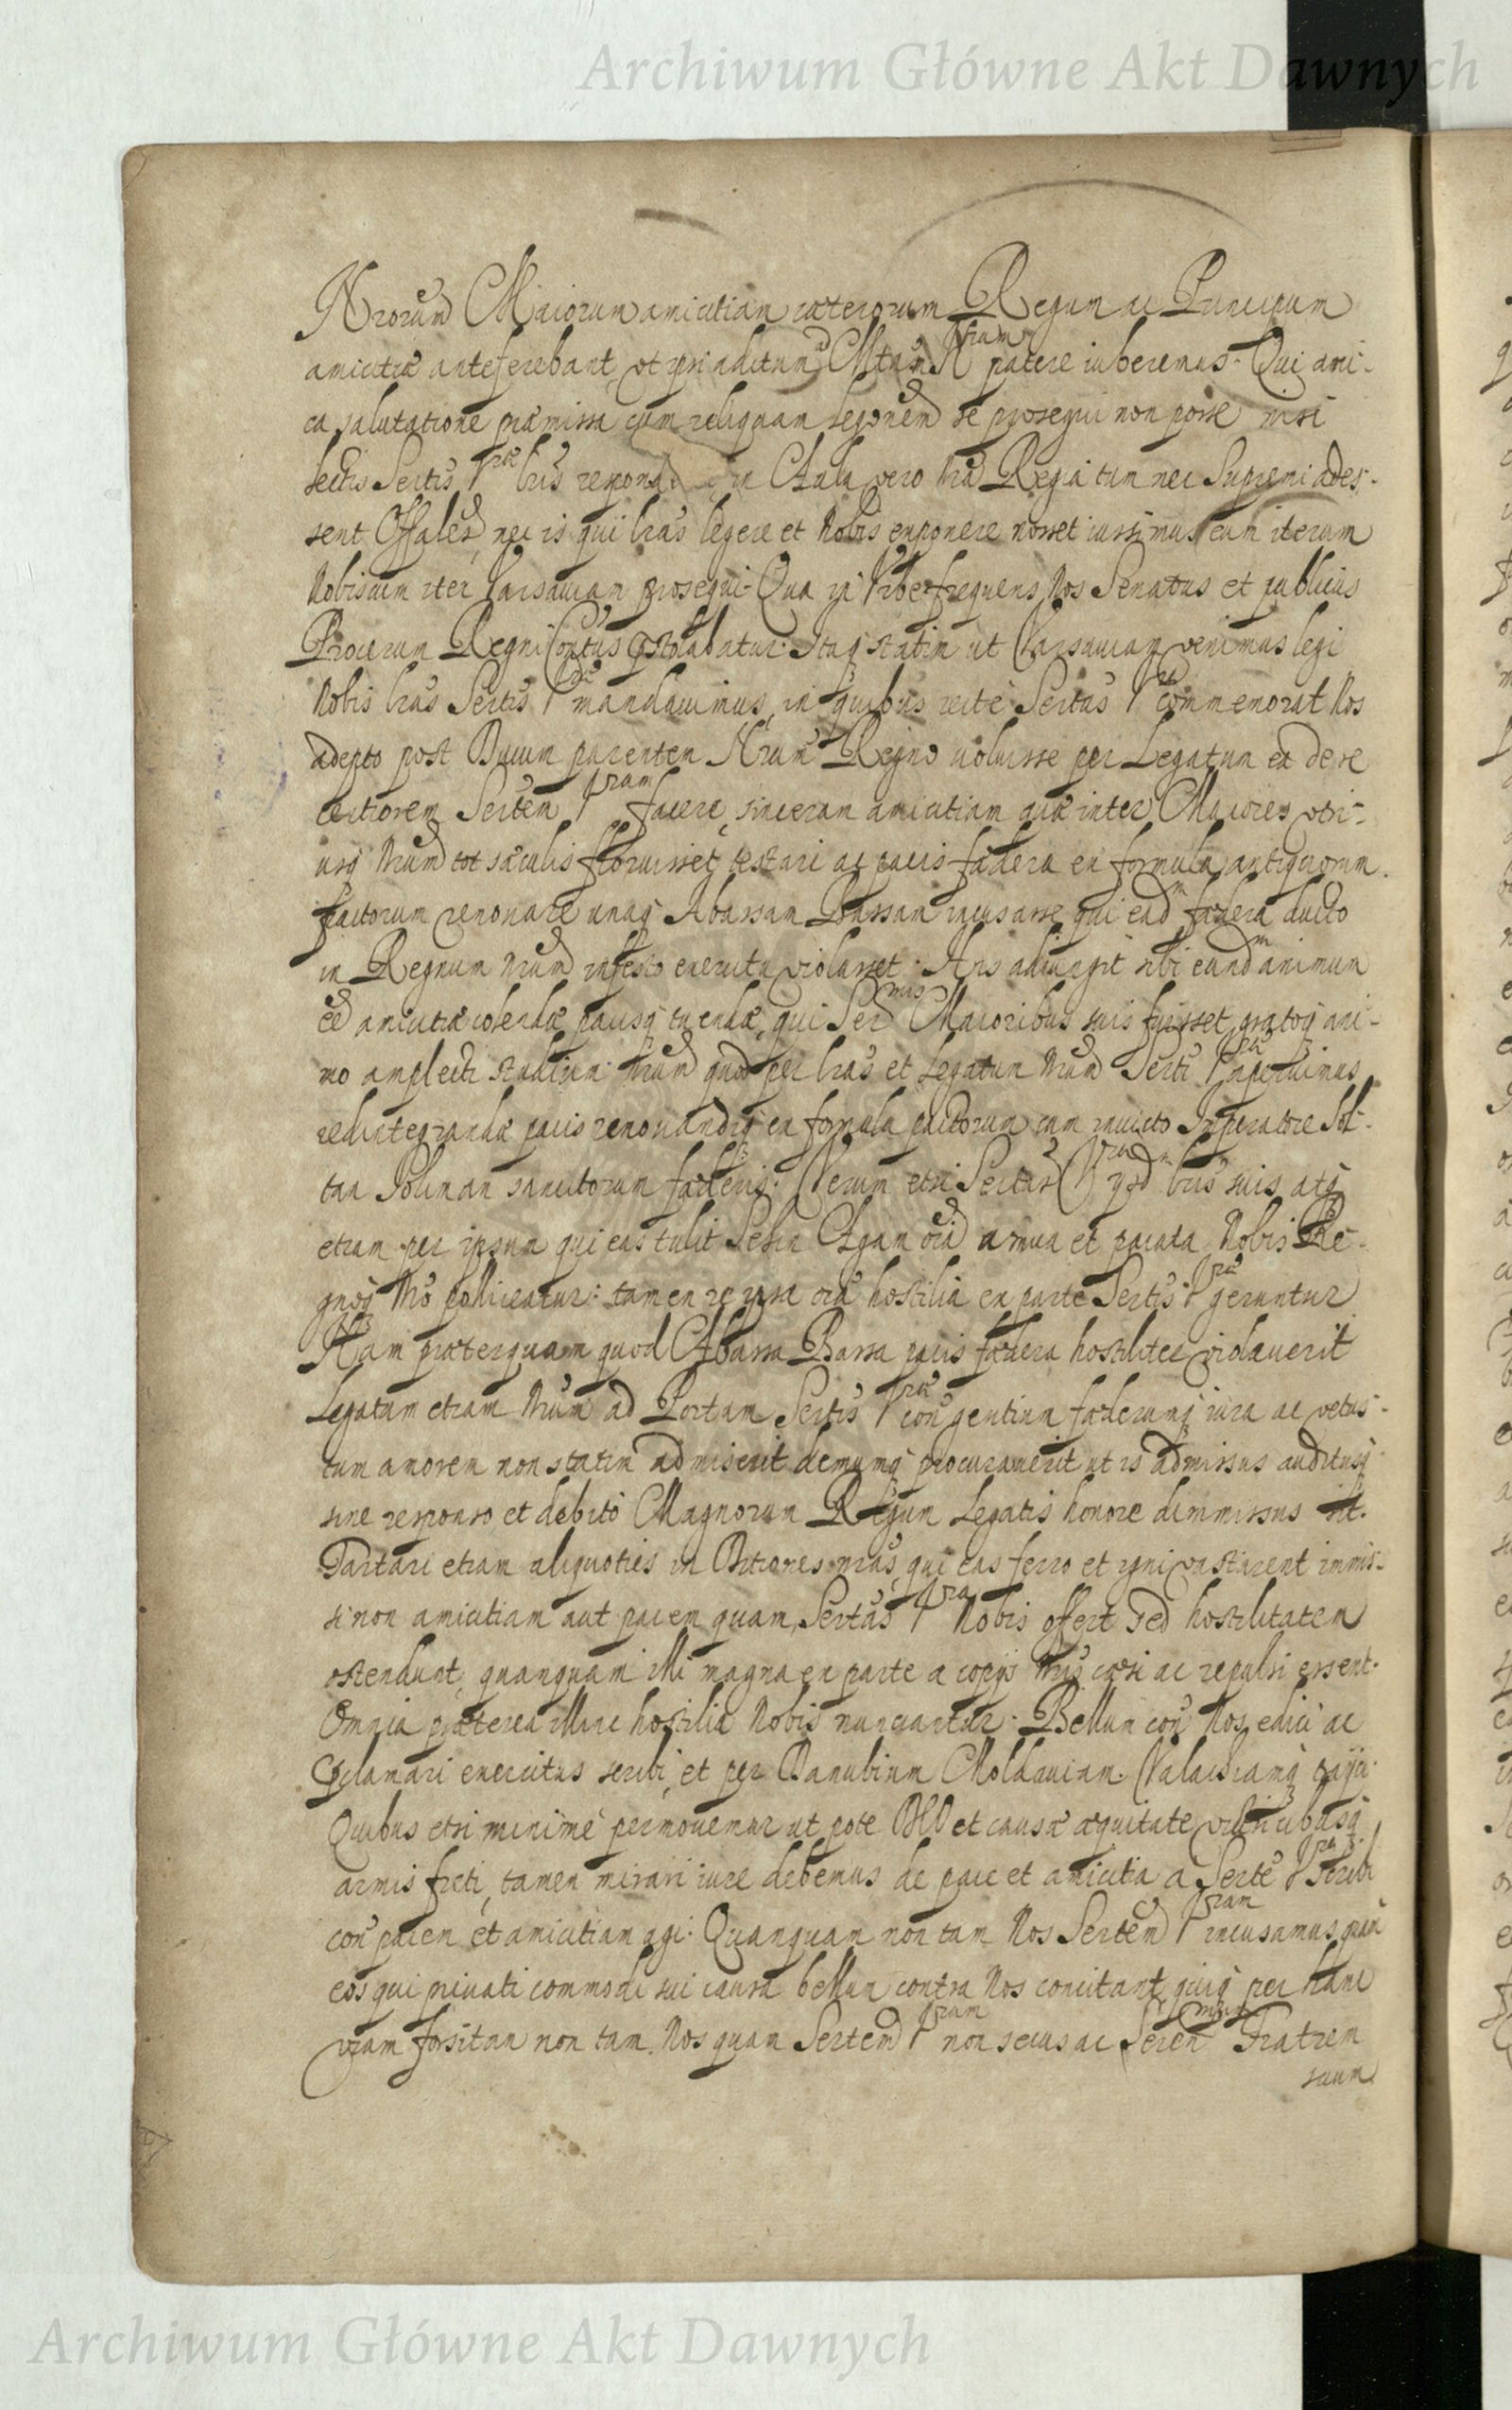 Archiwum Główne Akt Dawnych
Nrorum Maiorum amicitiam caeterorum Regum ac Principum
amicitiae anteferebant, vt ipsi aditum ad Mtem Nram patere iuberemus. Qui ami-
ca salutatione praemissa cum reliquam legonem se prosequi non posse nisi
lectis Sertis Vrae lris in Aula vero Nra Regia tum nec Supremi ades-
sent Offales, nec is qui lras legere et Nobis exponere nosset iussimus eum iterum
Nobiscum iter Varsauiam prosequi. Qua in Vrbe frequens Nos Senatus et publicus
Procerum Regni Contus Itaq statim ut Varsauiam venimus legi
Nobis lras Sertis Vrae mandauimus, in quibus recte Sertas Vra commemorat Nos
adepto post Diuum parentem Nrum Regno uoluisse per Legatum ea de re
certiorem Sertem Vram facere, sinceram amicitiam quae inter Maiores vtri-
usq Nrum tot saeculis floruisset, testari ac pacis faedera ex formula antiquorum
pactorum renouare unaq Abassam Bassam incusasse qui ead faedera ducto
in Regnum Nrum infesto exercitu violasset. His adiungit sibi eundm animum
ee amicitiae colendae pacisq tuendae, qui Sermis Maioribus suis fuisset gratoq ani-
mo amplecti studium Nrum quod per lras et Legatum Nrum Serti Vrae aperuimus
redintegrandae pacis renouandiq ex formula pactorum cum inuicto Imperatore Sol-
tan Soliman sancitorum faederis. Verum etsi Sertas Vra lris suis atq
etiam per ipsum qui eas tulit Sefer Agam oia amica et pacata Nobis Re-
gnoq Nro polliceatur: tamen re ipsa oia hostilia ex parte Sertis Vrae geruntur
Nam praeterquam quod Abassa Bassa pacis faedera hostiliter violauerit
Legatum etiam Nrum ad Portam Sertis Vrae con gentium faederumq iura ac vetus-
tum amorem non statim admiserit demumq procurauerit ut is admissus auditusq
sine responso et debito Magnorum Regum Legatis honore dimissus sit.
Tartari etiam aliquoties in Ditiones nras, qui eas ferro et igni vastarent immis-
si non amicitiam aut pacem quam Sertas Vra Nobis offert sed hostilitatem
ostendunt, quanquam illi magna ex parte a copijs Nris caesi ac repulsi essent.
Omnia praeterea illinc hostilia Nobis nunciantur. Bellum con Nos edici ac
proclamari exercitus scribi et per Danubium Moldauiam Valachiamq traijci.
Quibus etsi minime permouemur ut pote DEO et causae aequitate vindicibusq
armis freti, tamen mirari iure debemus de pace et amicitia a Serte Vra scribi
con pacem et amicitiam agi. Quanquam non tam Nos Sertem Vram incusamus quam
eos qui priuati commodi sui causa bellum contra Nos concitant, quiq per hanc
viam forsitan non tam Nos quam Sertem Vram non secus ac Serenmum Fratrem
suum
Archiwum Główne Akt Dawnych